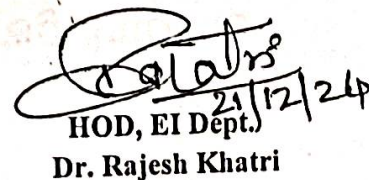 21/12/24
HOD, EI Dept.
Dr. Rajesh Khatri